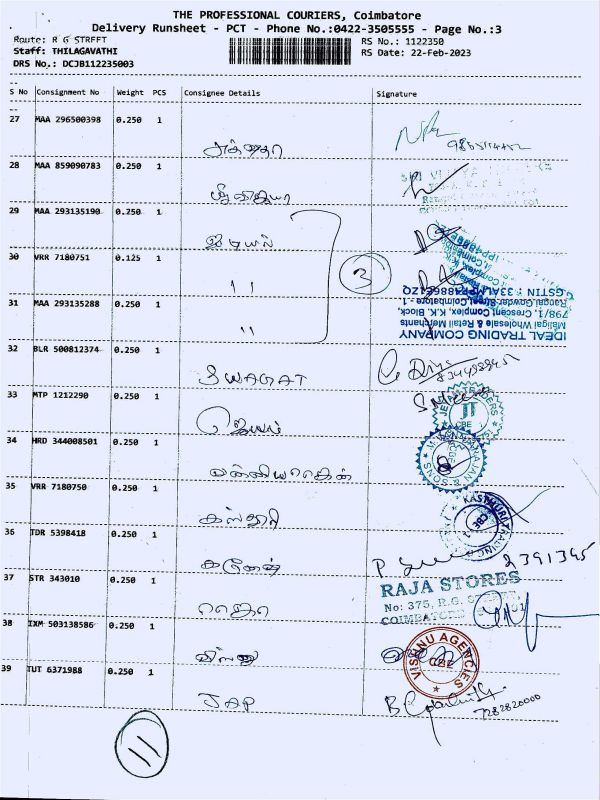 THE PROFESSIONAL COURIERS, Coimbatore
Delivery Runsheet - PCT - Phone No.:0422-3505555 - Page No.:3
Route: R G STREET
RS No.: 1122350
Staff: THILAGAVATHI
RS Date: 22-Feb-2023
DRS No.: DCJB112235003
S No Consignment No Weight PCS Consignee Details Signature
27 MAA 296500398 0.250 1
28 MAA 859090783 0.250 1
29 MAA 293135190 0.250 1
ஐடியல்
30 VRR 7180751 0.125 1
"
3
31 MAA 293135288 0.250 1
"
IDEAL TRADING COMPANY
Maligai Wholesale & Retail Merchants
798/1, Crescent Complex, K.K. Block,
Rangai Gowder Street, Coimbatore - 1
32 BLR 500812374 0.250 1
SWAGAT
33 MTP 1212290 0.250 1
ஜெயம்
JT
CBE
34 HRD 344008501 0.250 1
35 VRR 7180750 0.250 1
கஸ்தூரி
KASTHURI TRADING
CBE
36 TDR 5398418 0.250 1
கணேஷ்
37 STR 343010 0.250 1
ராஜா
RAJA STORES
No: 375, R.G. STREET,
COIMBATORE
38 IXM 503138586 0.250 1
விஷ்ணு
VISHNU AGENCIES
CBE
39 TUT 6371988 0.250 1
JAP
7282820000
11